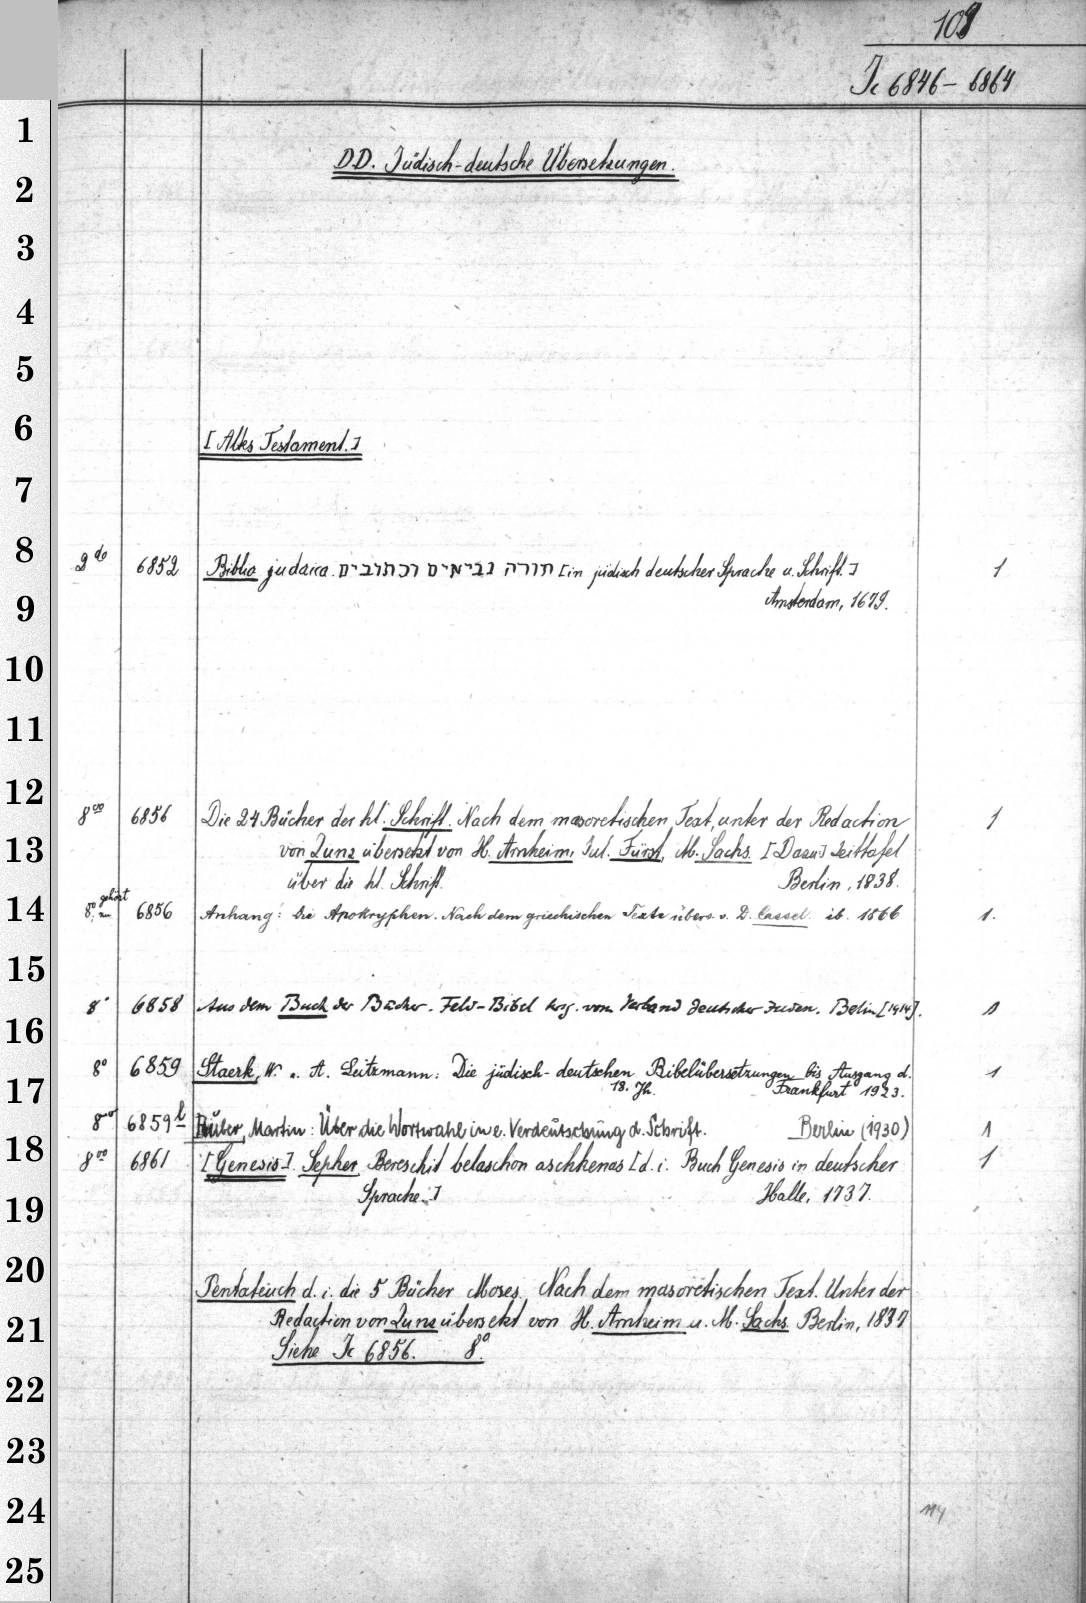 109
Jc 6846 – 6864
1
DD. Jüdisch-deutsche Übersetzungen.
2
3
4
5
6
[Altes Testament.]
7
8
2do 6852 Biblia judaica. תורה נביאים וכתובים [in jüdisch deutscher Sprache u. Schrift.] 1
9
Amsterdam, 1679.
10
11
12
8vo 6856 Die 24 Bücher der hl. Schrift. Nach dem masoretischen Text, unter der Redaction 1
13
von Zunz übersetzt von H. Arnheim, Jul. Fürst, M. Sachs. [Dazu] Zeittafel
über die hl. Schrift. Berlin, 1838.
14
8o gehört zu 6856 Anhang: Die Apokryphen. Nach dem griechischen Texte übers. v. D. Cassel. ib. 1866 1.
15
8o 6858 Aus dem Buch der Bücher. Feld-Bibel hrsg. vom Verband deutscher Juden. Berlin [1914]. 1
16
8o 6859 Staerk, W. u. A. Leitzmann: Die jüdisch-deutschen Bibelübersetzungen bis Ausgang d. 1
17
18. Jh. Frankfurt 1923.
8vo 6859 b Buber, Martin: Über die Wortwahl in e. Verdeutschung d. Schrift. Berlin (1930) 1
18
8vo 6861 [Genesis]. Sepher Bereschit belaschon aschkenas [d. i. Buch Genesis in deutscher 1
19
Sprache.] Halle, 1737.
20
Pentateuch d. i. die 5 Bücher Moses. Nach dem masoretischen Text. Unter der
21
Redaction von Zunz übersetzt von H. Arnheim u. M. Sachs. Berlin, 1837
Siehe Jc 6856. 8o.
22
23
24
25